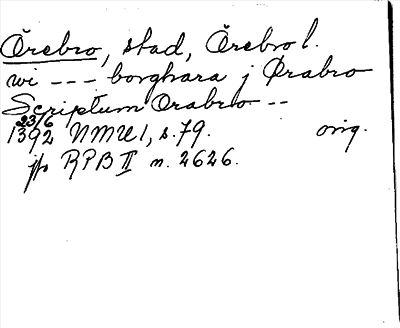 Örebro, stad, Örebro l.
wi --- borghara j Ørabro
Scriptum Orabro --
23/6
1392 NMU 1, s. 79. orig.
jfr RPB II n. 2626.